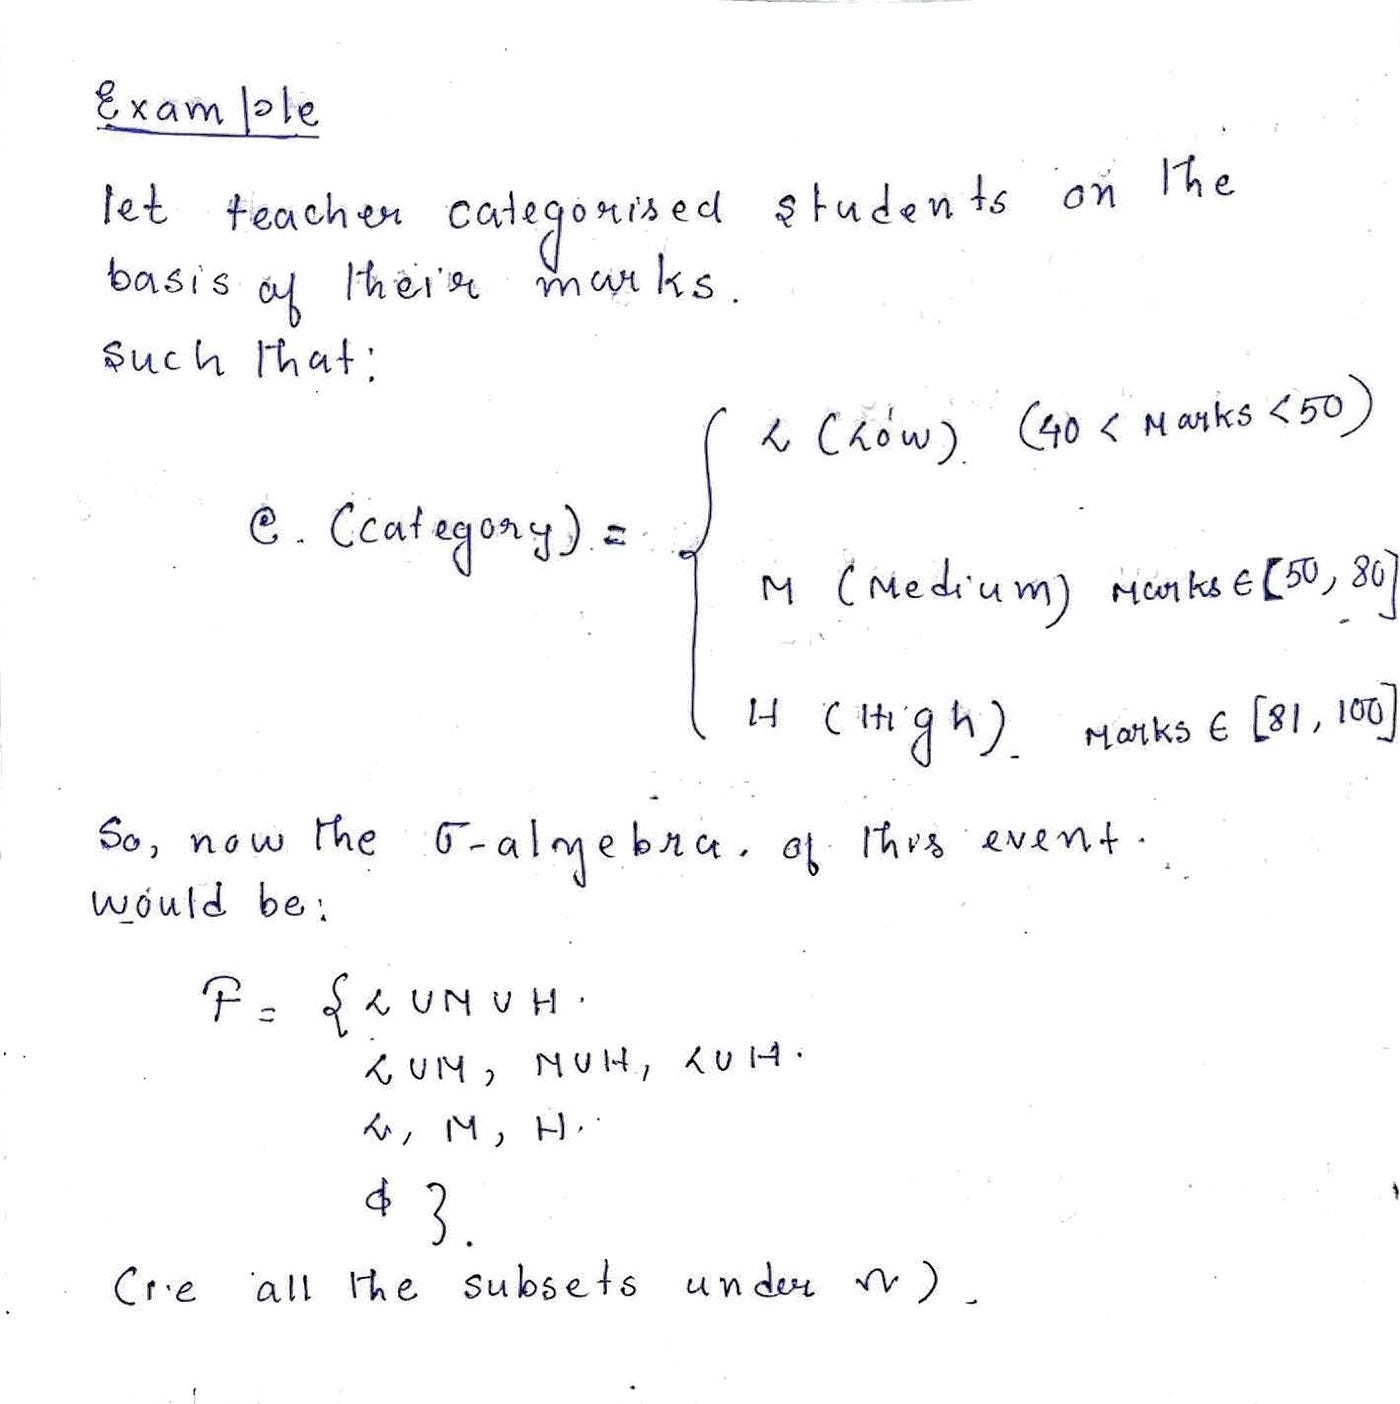 Example
let teacher categorised students on the
basis of their marks.
Such that:
L (Low). (40 < Marks < 50)
C. (Category) =
M (Medium) Marks ∈ [50, 80]
H (High). Marks ∈ [81, 100]
So, now the σ-algebra. of this event.
would be:
F = { L ∪ M ∪ H.
L ∪ M, M ∪ H, L ∪ H.
L, M, H.
ϕ }.
(i.e all the subsets under Ω).